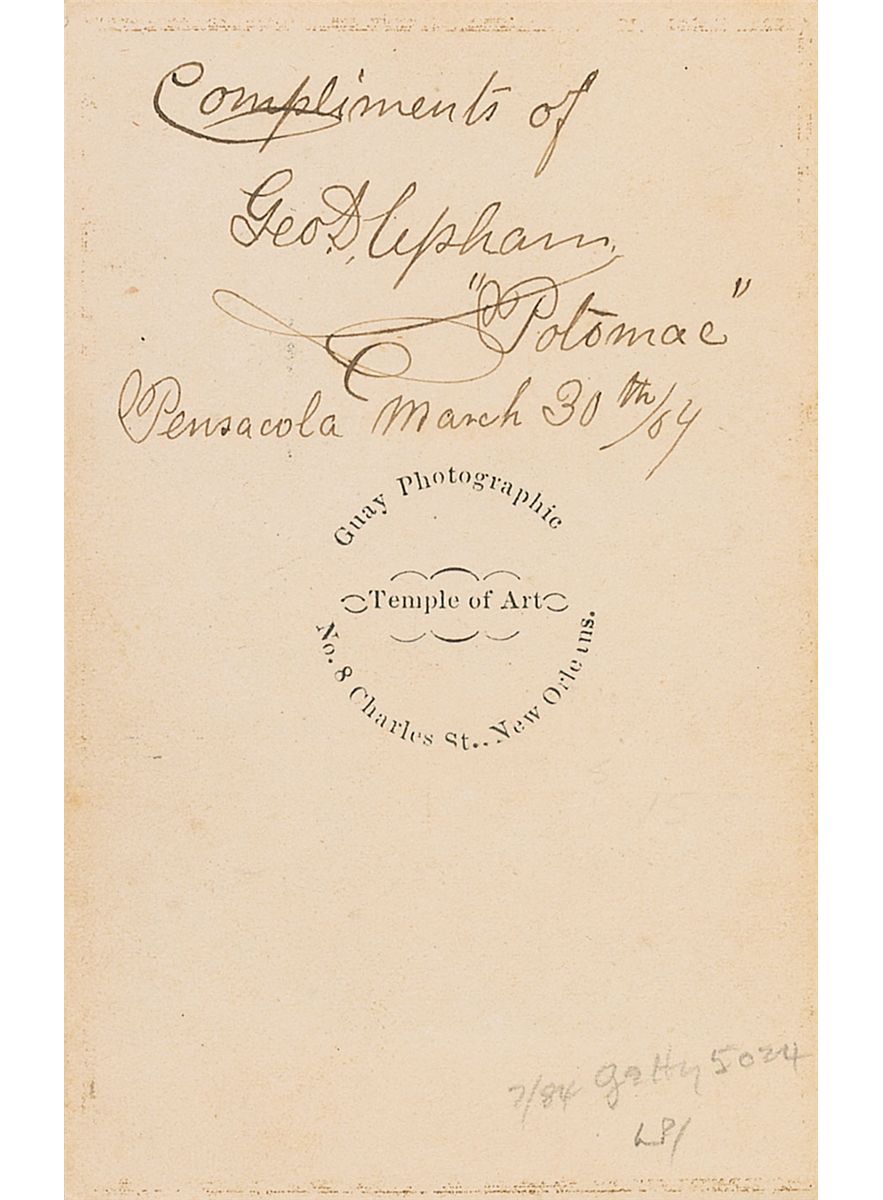 Compliments of
Geo. D. Upham,
"Potomac"
Pensacola March 30th/64
Guay Photographic
Temple of Art
No. 8 Charles St., New Orleans.
7/84 Getty 5024